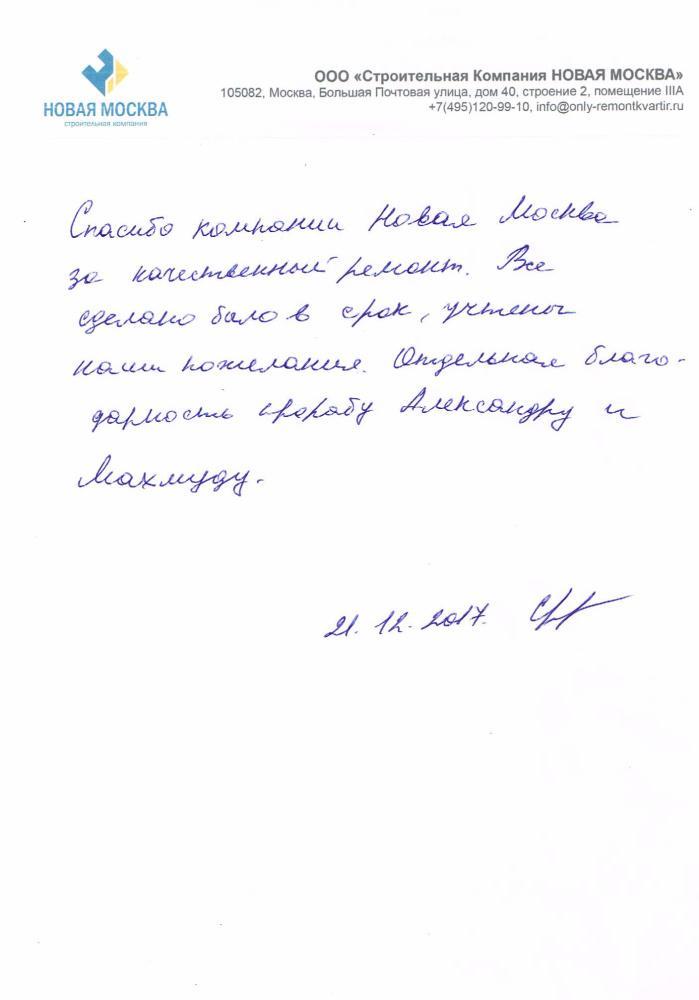 НОВАЯ МОСКВА
строительная компания
ООО «Строительная Компания НОВАЯ МОСКВА»
105082, Москва, Большая Почтовая улица, дом 40, строение 2, помещение IIIА
+7(495)120-99-10, info@only-remontkvartir.ru
Спасибо компании Новая Москва
за качественный ремонт. Все
сделано было в срок, учтены
наши пожелания. Отдельная благо-
дарность прорабу Александру и
Махмуду.
21.12.2017.